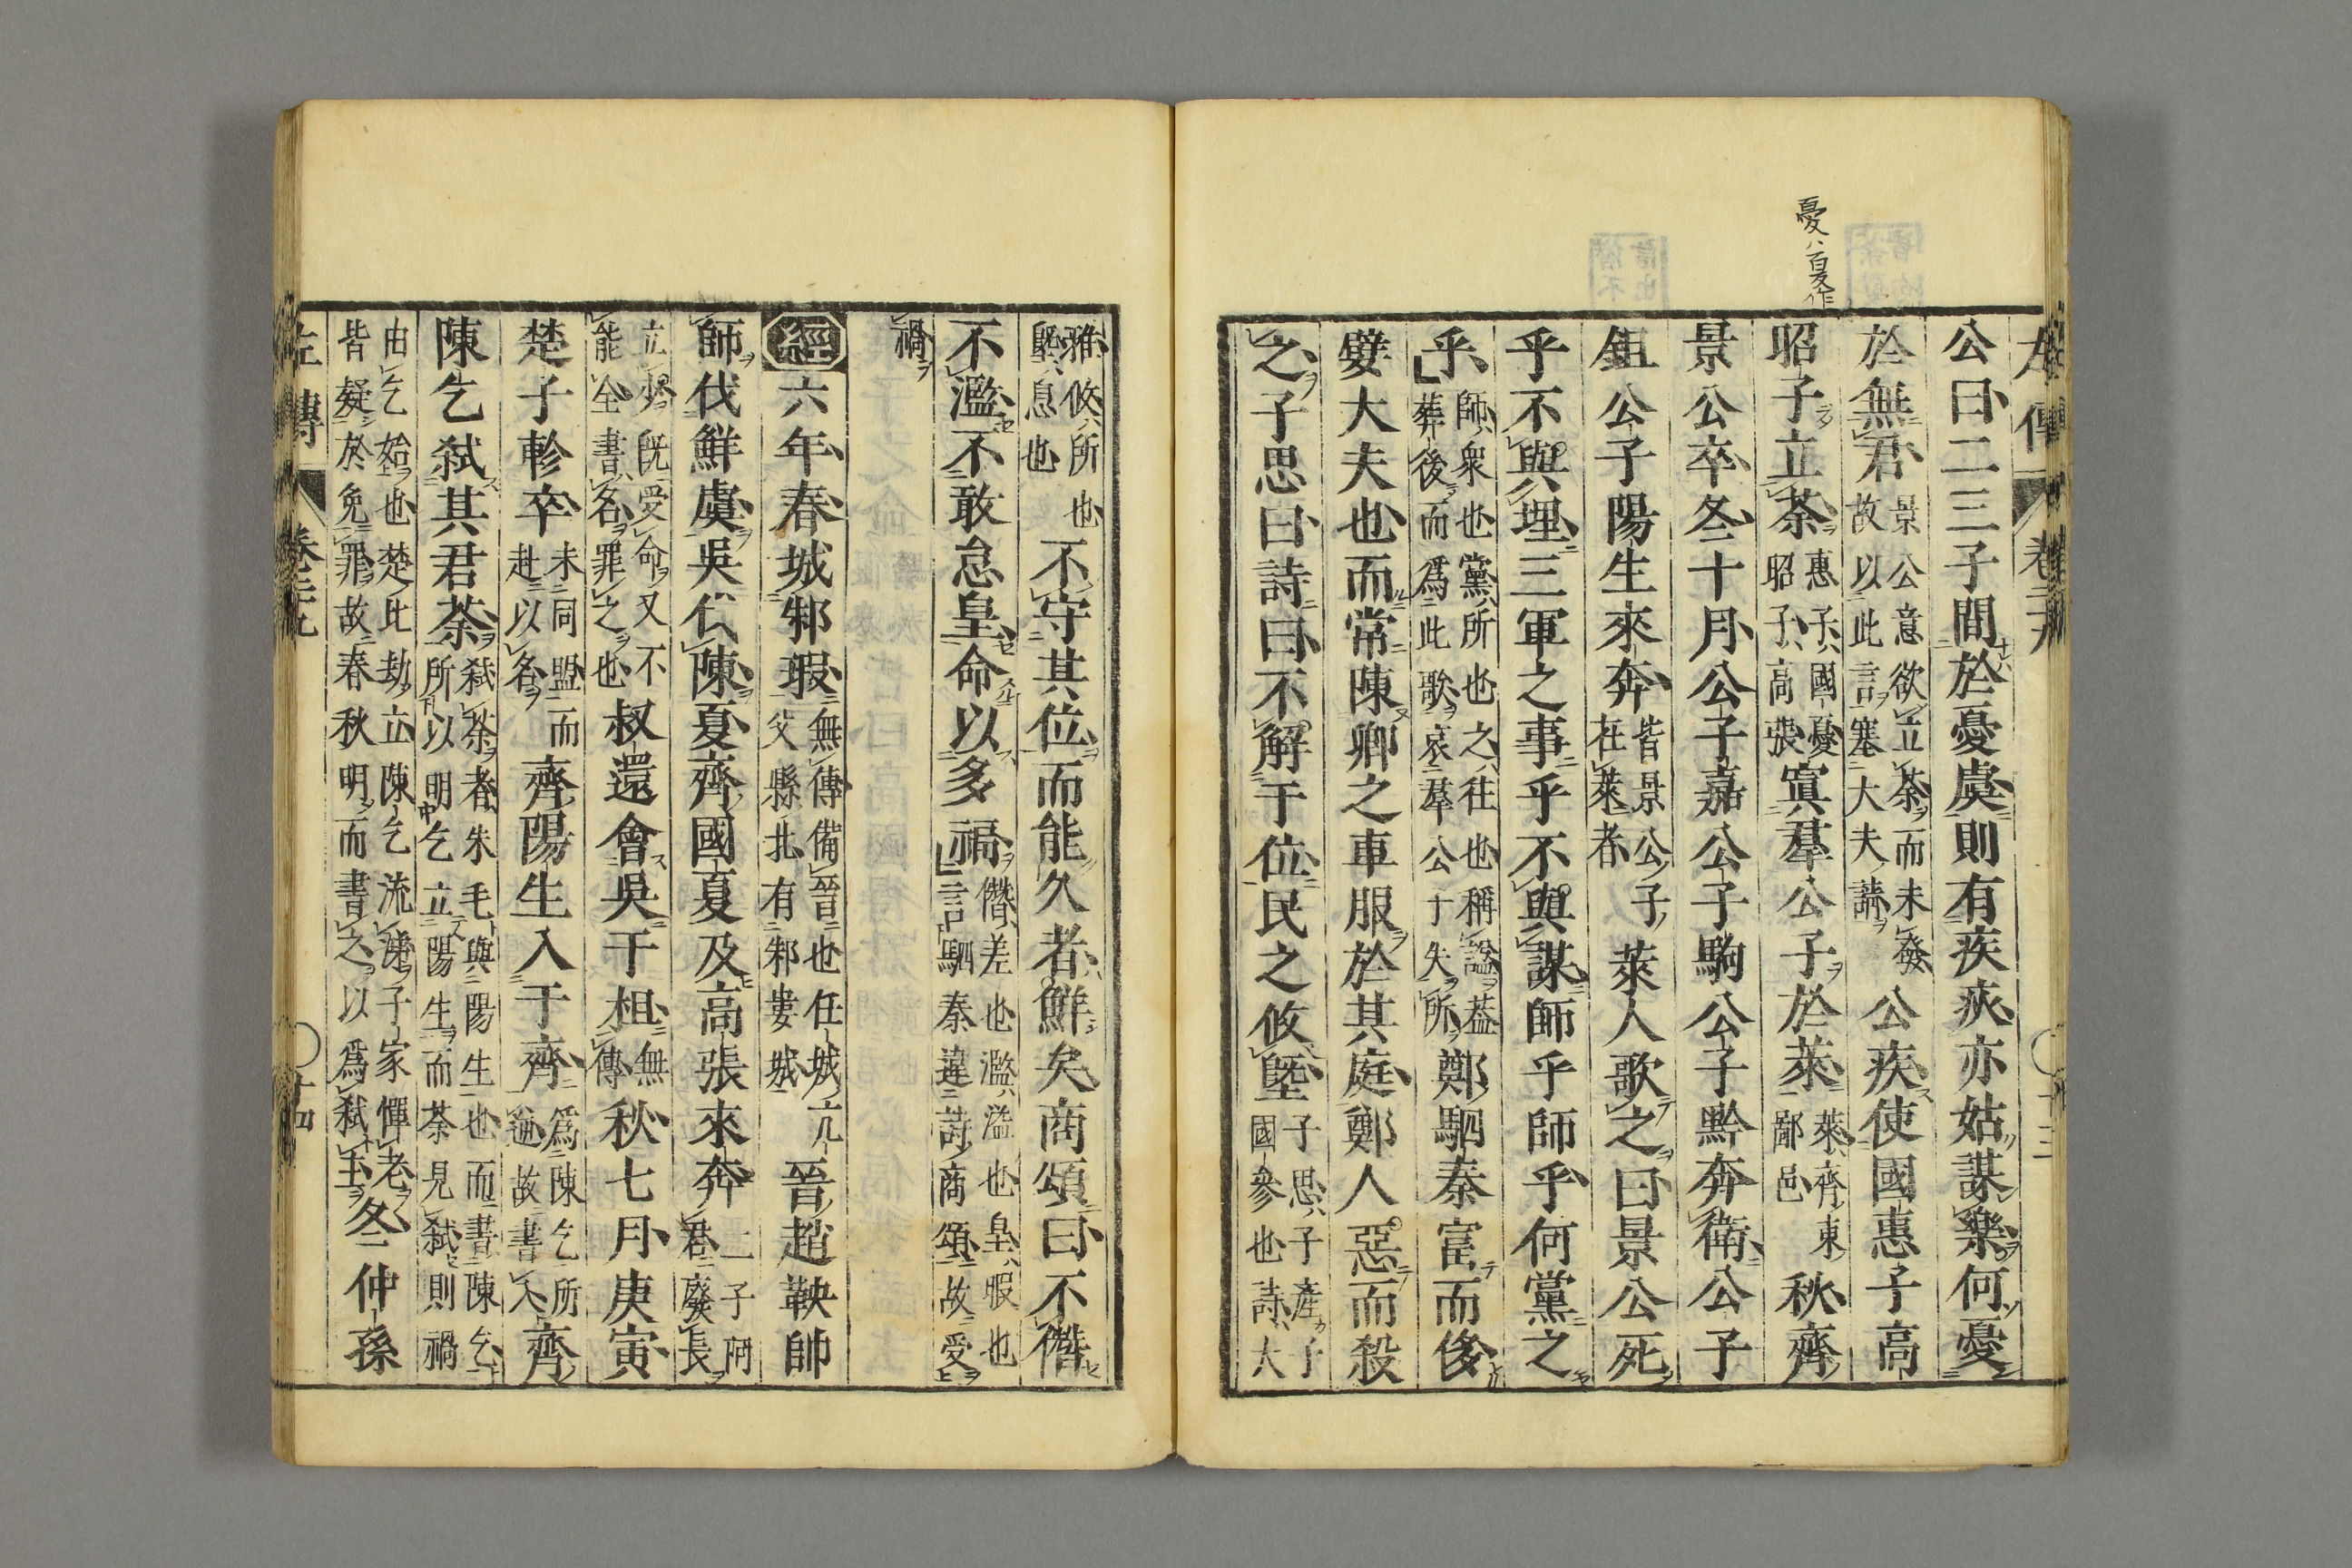 左傳 卷二九 十三
憂ハ一夏作
公曰二三子間於憂虞則有疾疢亦姑謀樂何憂
於無君景公意欲立荼而未發故以此言塞大夫請公疾使國惠子高
昭子立荼惠子國夏昭子高張寘羣公子於萊萊齊東鄙邑秋齊
景公卒冬十月公子嘉公子駒公子黔奔衛公子
鉏公子陽生來奔皆景公子在萊者萊人歌之曰景公死
乎不與埋三軍之事乎不與謀師乎師乎何黨之
乎師衆也黨所也之往也稱謚蓋葬後而爲此歌哀羣公子失所鄭駟秦富而侈
嬖大夫也而常陳卿之車服於其庭鄭人惡而殺
之子思曰詩曰不解于位民之攸塈子思子產子國參也詩大
雅攸所也塈息也不守其位而能久者鮮矣商頌曰不僭
不濫不敢怠皇命以多禍僭差也濫溢也皇暇也言駟秦違詩商頌故受
禍
經六年春城邾瑕無傳備晉也任城亢父縣北有邾婁城晉趙鞅帥
師伐鮮虞吳伐陳夏齊國夏及高張來奔二子阿君廢長
立少既受命又不能全書名罪之也叔還會吳于柤無傳秋七月庚寅
楚子軫卒未同盟而赴以名齊陽生入于齊爲陳乞所逆故書入齊
陳乞弒其君荼弒荼者朱毛與陽生也而書陳乞所以明乞立陽生而荼見弒則禍
由乞始也楚比劫立陳乞流涕子家憚老皆疑於免罪故春秋明而書之以爲弒主冬仲孫
左傳 卷二九 十四